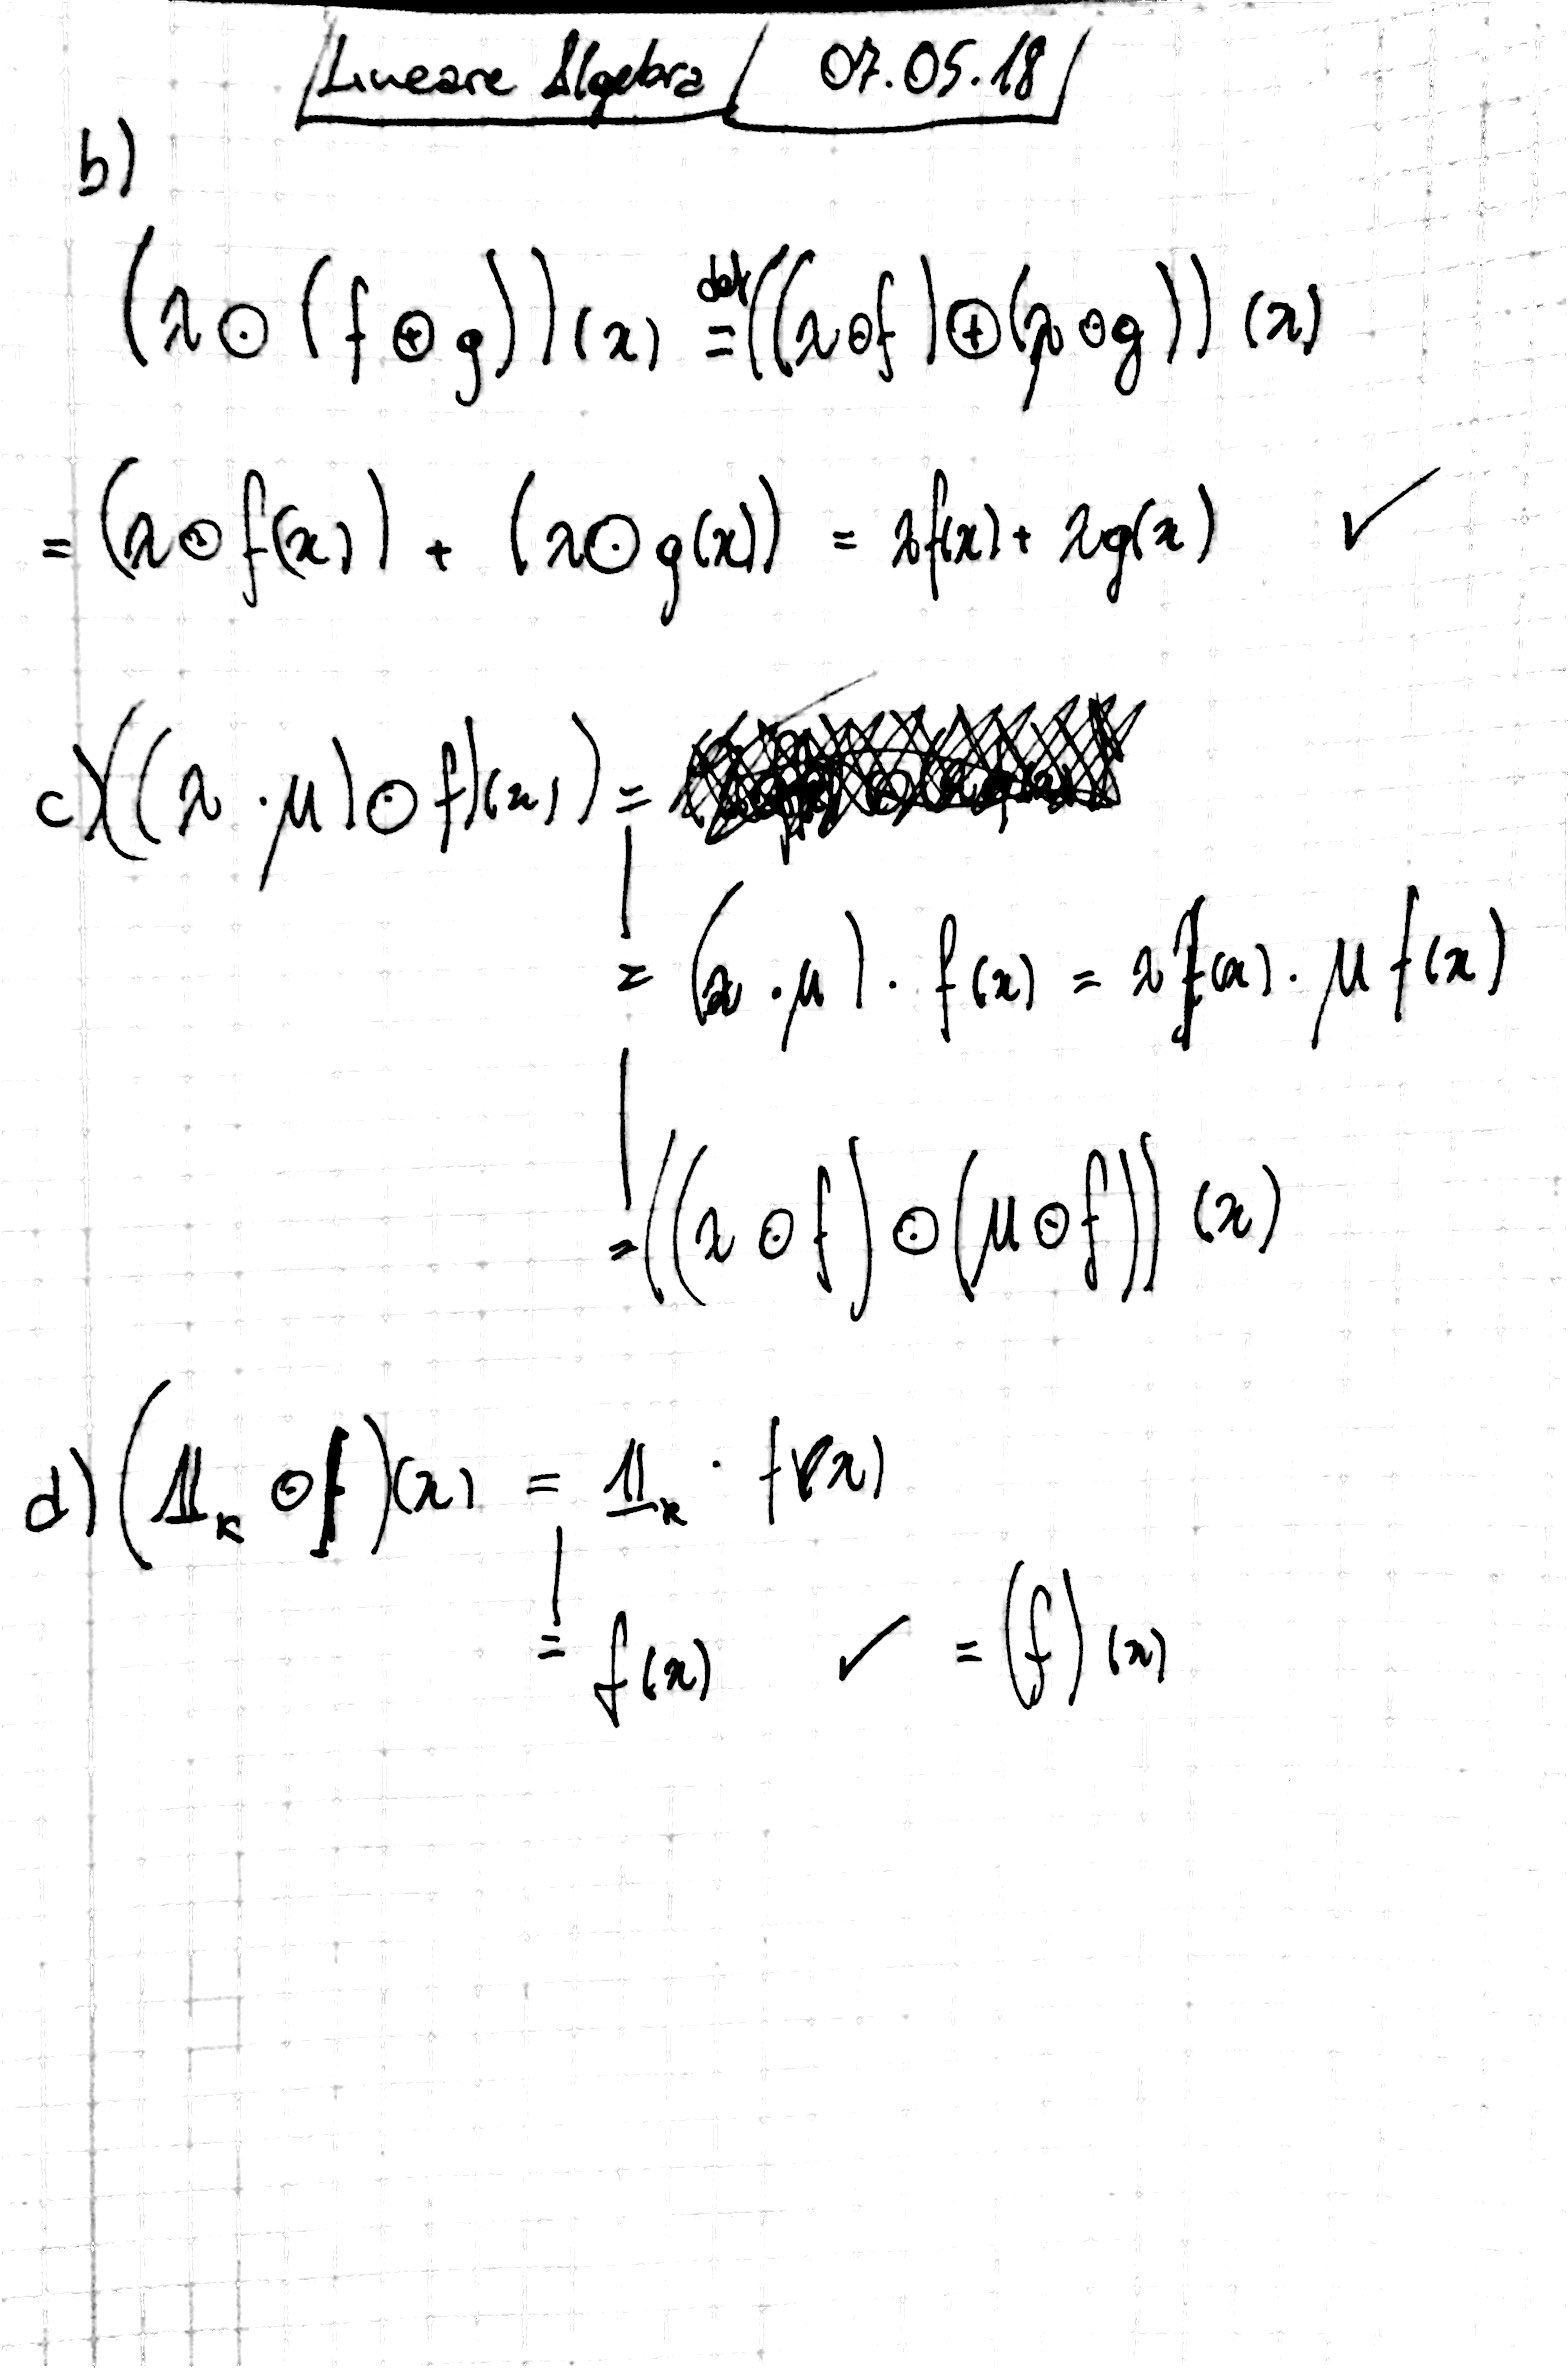 Lineare Algebra 07.05.18
b)
(λ ⊙ (f ⊕ g))(x) =def ((λ ⊙ f) ⊕ (λ ⊙ g))(x)
= (λ ⊙ f(x)) + (λ ⊙ g(x)) = λf(x) + λg(x) ✓
c) ((λ · μ) ⊙ f)(x)) =
= (λ · μ) · f(x) = λ f(x) · μ f(x)
= ((λ ⊙ f) ⊙ (μ ⊙ f))(x)
d) (𝟙_K ⊙ f)(x) = 𝟙_K · f(x)
= f(x) ✓ = (f)(x)